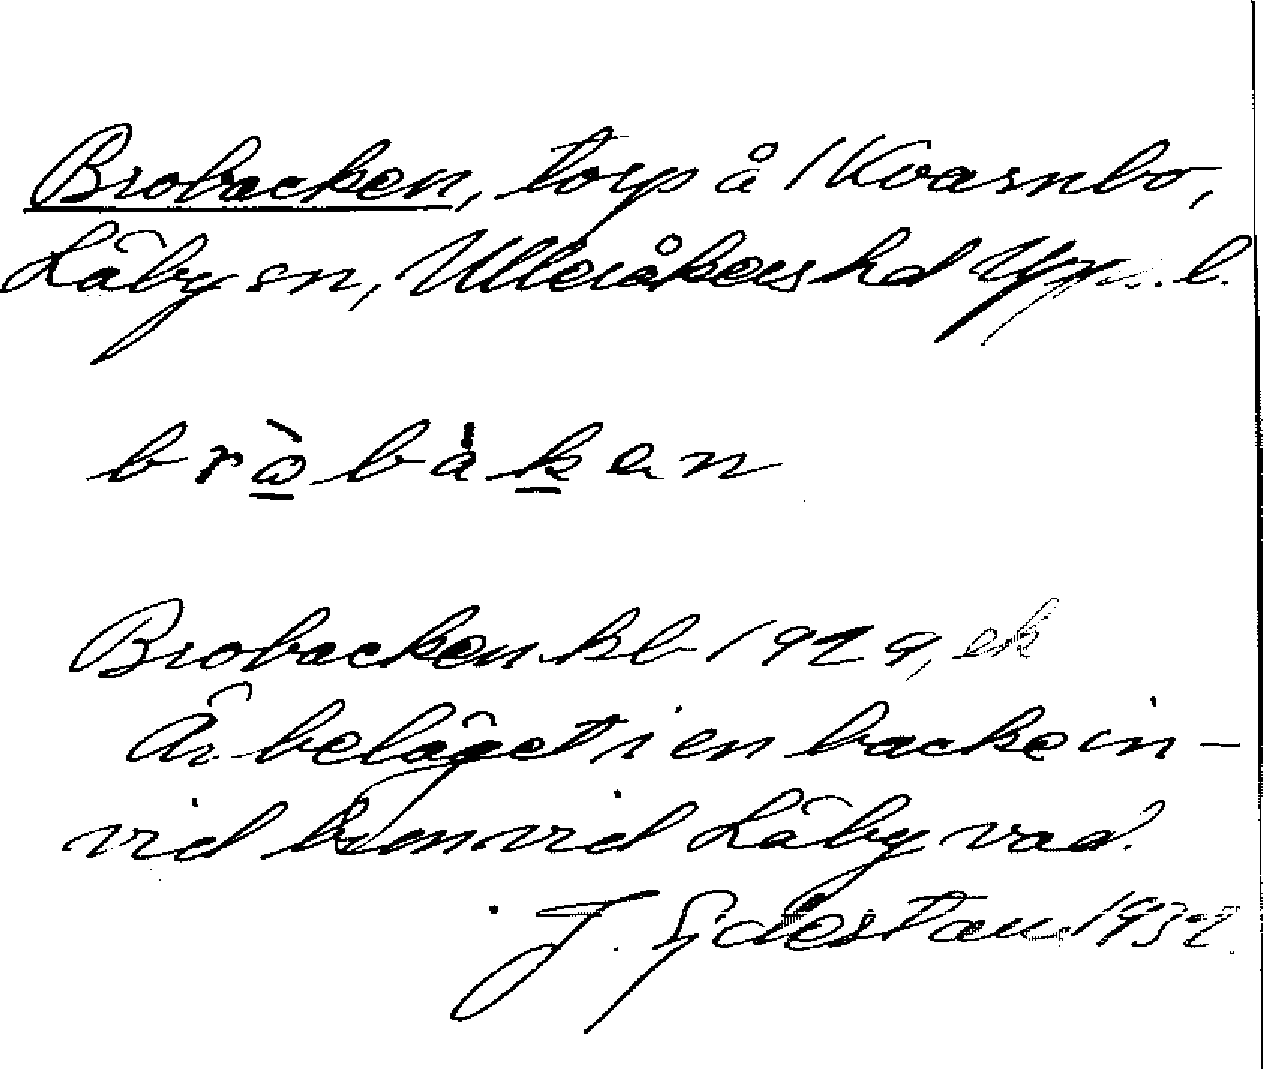 Brobacken, torp å Kvarnbo,
Läby sn, Ulleråkers hd Uppl.
bròbàken
Brobacken kb 1929, ek
Är beläget i en backe in-
vid bron vid Läby vad.
J. Sjöestam 1932.